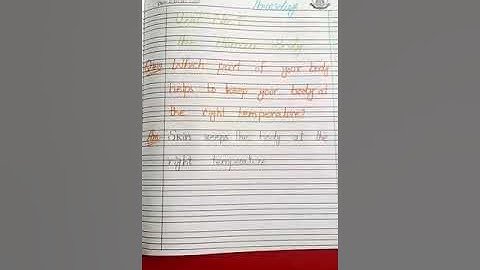 Thursday
Unit No: 1
The Human Body
Ques: Which part of your body
helps to keep your body at
the right temperature?
Ans: Skin keeps the body at the
right temperature